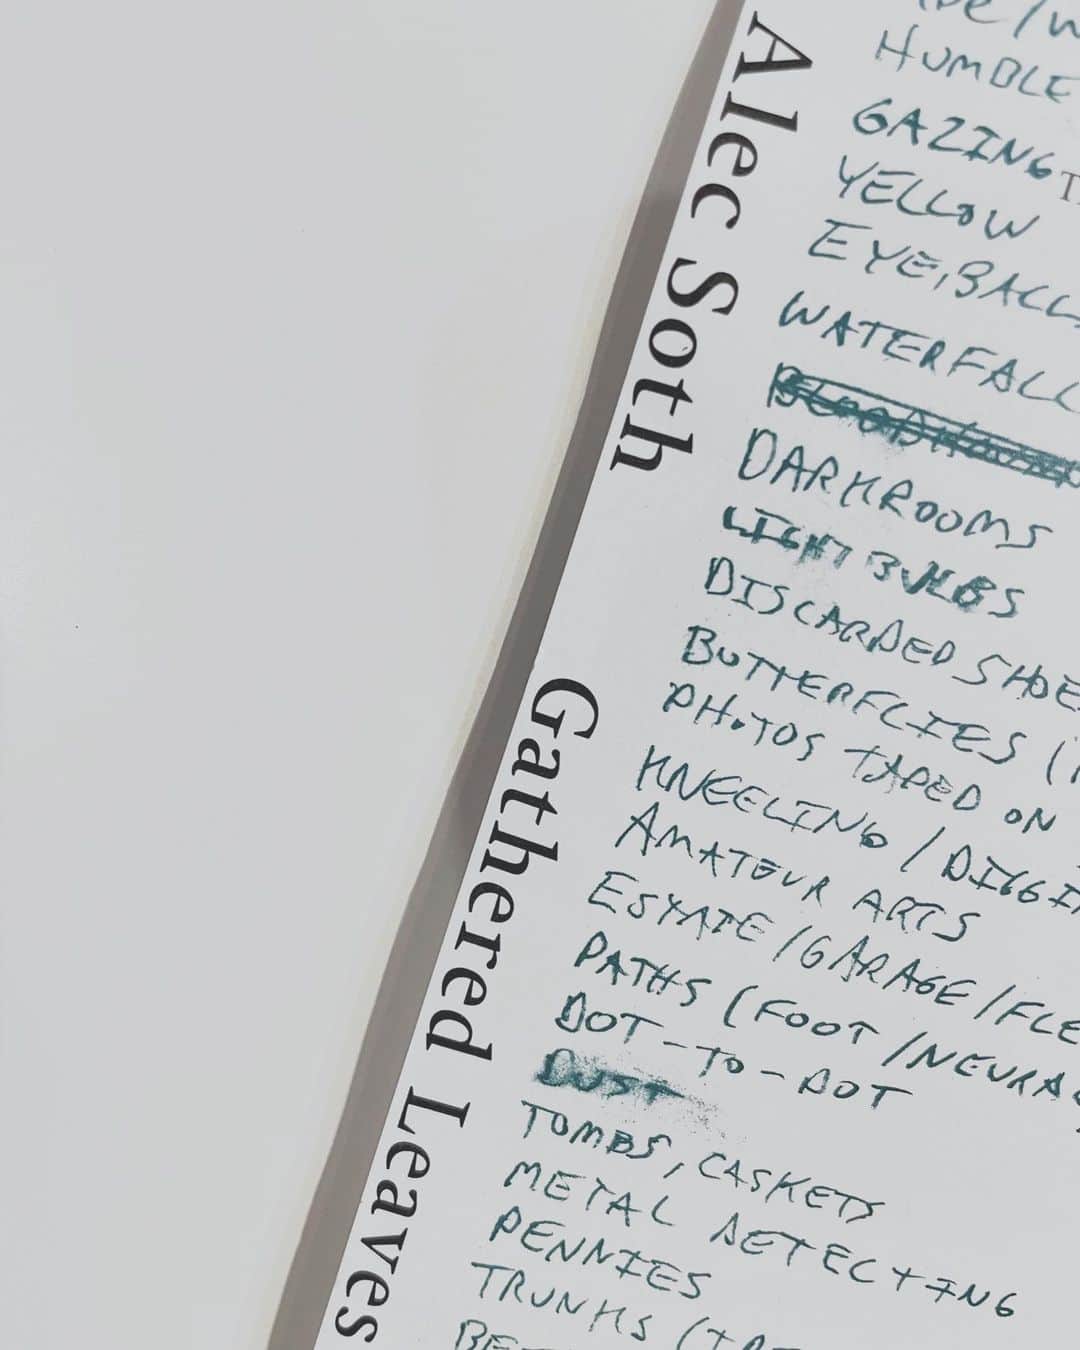 Alec Soth
Gathered Leaves
HUMBLE
GAZING
YELLOW
EYE,BALL
WATERFALL
DARKROOMS
LIGHT BULBS
DISCARDED SHOE
BUTTERFLIES (
PHOTOS TAPED ON
KNEELING / DIGGI
AMATEUR ARTS
ESTATE / GARAGE / FLE
PATHS (FOOT / NEURA
DOT-TO-DOT
DUST
TOMBS, CASKETS
METAL DETECTING
PENNIES
TRUNKS (